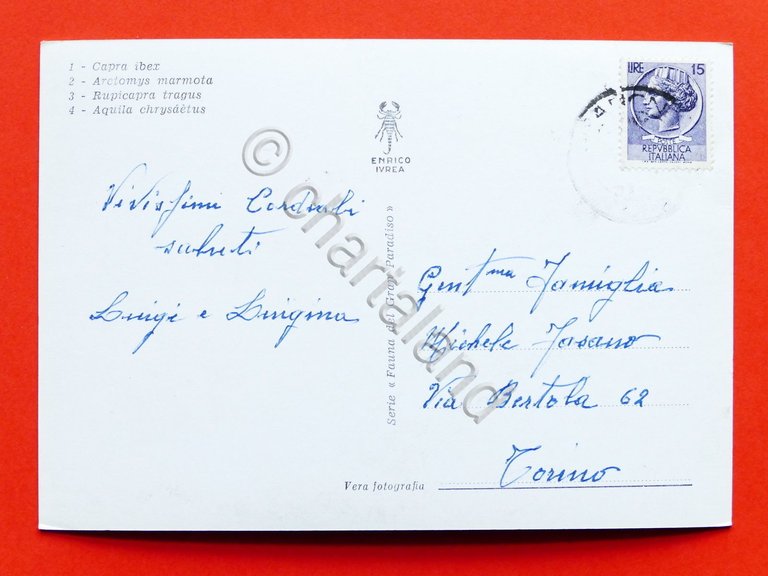 1 - Capra ibex
2 - Arctomys marmota
3 - Rupicapra tragus
4 - Aquila chrysáëtus
ENRICO
IVREA
LIRE 15
REPVBBLICA
ITALIANA
Vivissimi Cordiali
saluti
Luigi e Luigina
Serie « Fauna del Gran Paradiso »
Gent.ma Famiglia
Michele Fasano
Via Bertola 62
Torino
Vera fotografia
© chartaland